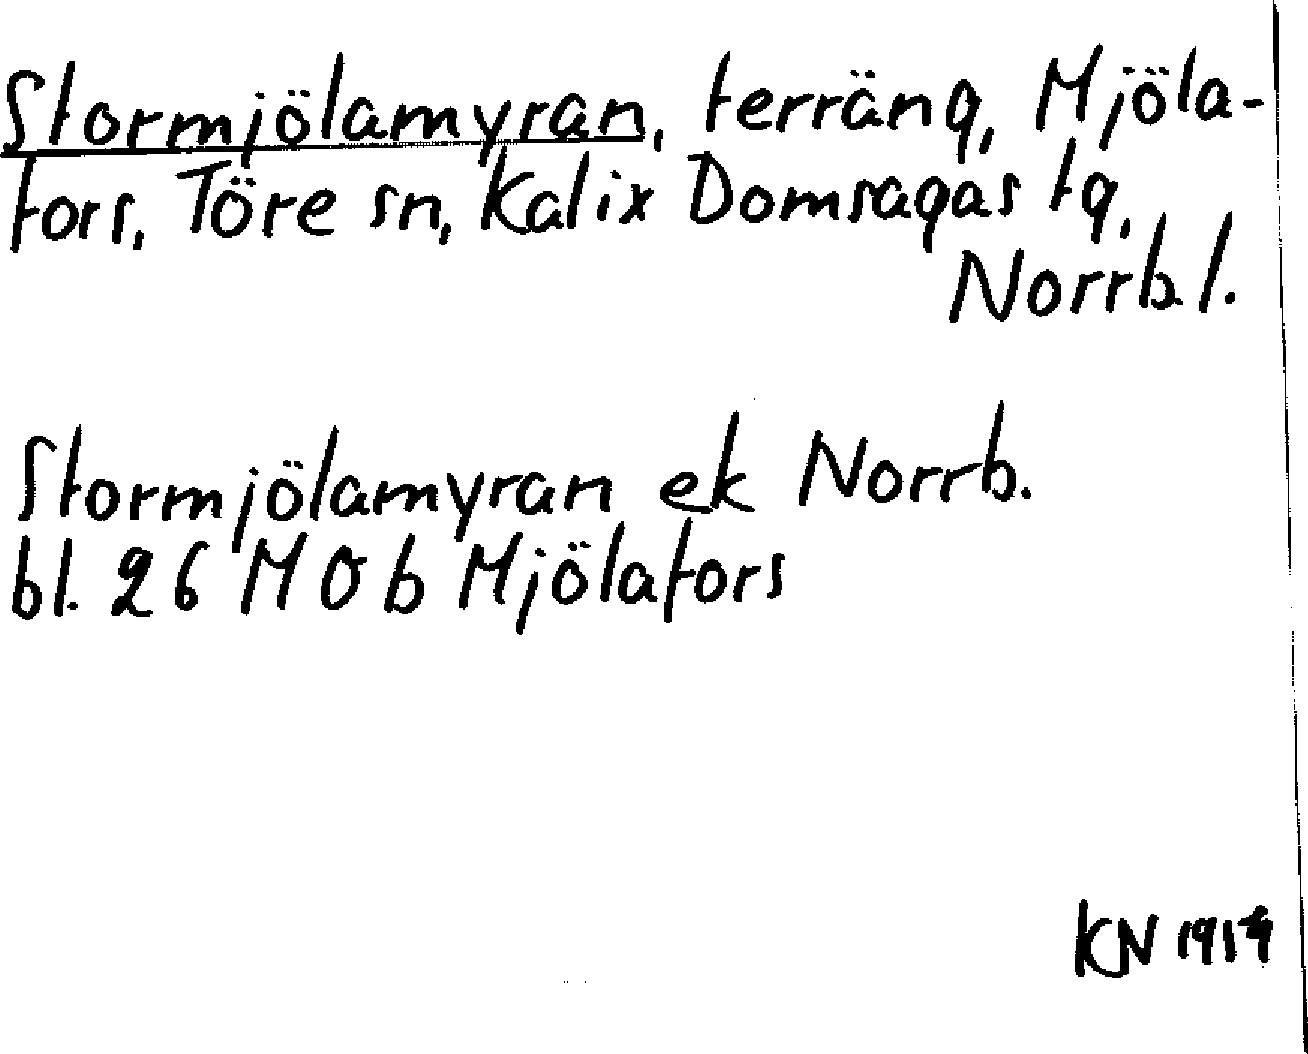 Stormjölamyran, terräng, Mjöla-
fors, Töre sn, Kalix Domsagas tg,
Norrb l.
Stormjölamyran ek Norrb.
bl. 26 M O b Mjölafors
KN